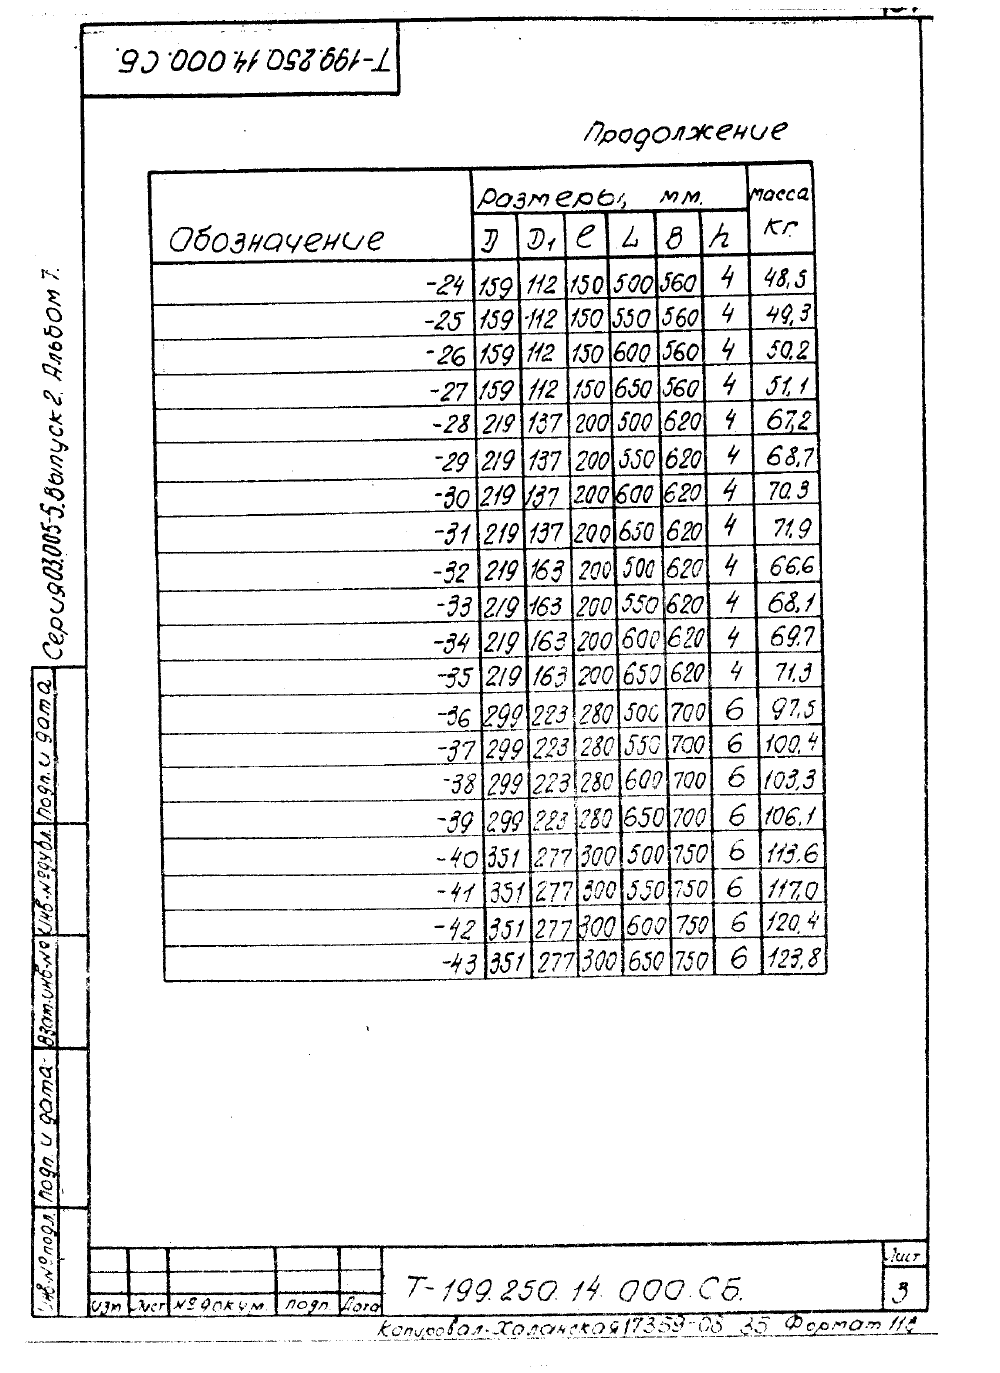 Т-199.250.14.000.СБ.
Продолжение
Обозначение Размеры, мм. масса кг.
D D1 ℓ L B h
-24 159 112 150 500 560 4 48,5
-25 159 112 150 550 560 4 49,3
-26 159 112 150 600 560 4 50,2
-27 159 112 150 650 560 4 51,1
-28 219 137 200 500 620 4 67,2
-29 219 137 200 550 620 4 68,7
-30 219 137 200 600 620 4 70.3
-31 219 137 200 650 620 4 71,9
-32 219 163 200 500 620 4 66,6
-33 219 163 200 550 620 4 68,1
-34 219 163 200 600 620 4 69,7
-35 219 163 200 650 620 4 71,3
-36 299 223 280 500 700 6 97,5
-37 299 223 280 550 700 6 100,4
-38 299 223 280 600 700 6 103,3
-39 299 223 280 650 700 6 106,1
-40 351 277 300 500 750 6 113,6
-41 351 277 300 550 750 6 117,0
-42 351 277 300 600 750 6 120,4
-43 351 277 300 650 750 6 123,8
Серия 03.005-5. Выпуск 2. Альбом 7.
Подп. и дата
Инв.№ дубл.
Взам.инв.№
Подп. и дата
Инв.№ подл.
Изм Лист № докум. подп. Дата
Т-199.250.14.000.СБ.
Лист
3
Копировал-Халанская 17359-08 35 Формат 11